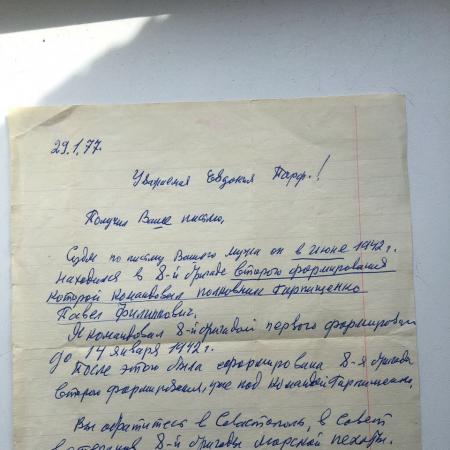 29.1.77.
Уважаемая Евдокия Парф.!
Получил Ваше письмо.
Судя по письму Вашего мужа он в июне 1942 г.
находился в 8-й бригаде второго формирования
которой командовал полковник Горпищенко
Павел Филиппович.
Я командовал 8-й бригадой первого формирован
до 14 января 1942 г.
После этого была сформирована 8-я бригада
второго формирования, уже под командой Горпищенко.
Вы обратитесь в Севастополь, в Совет
ветеранов 8-й бригады морской пехоты.